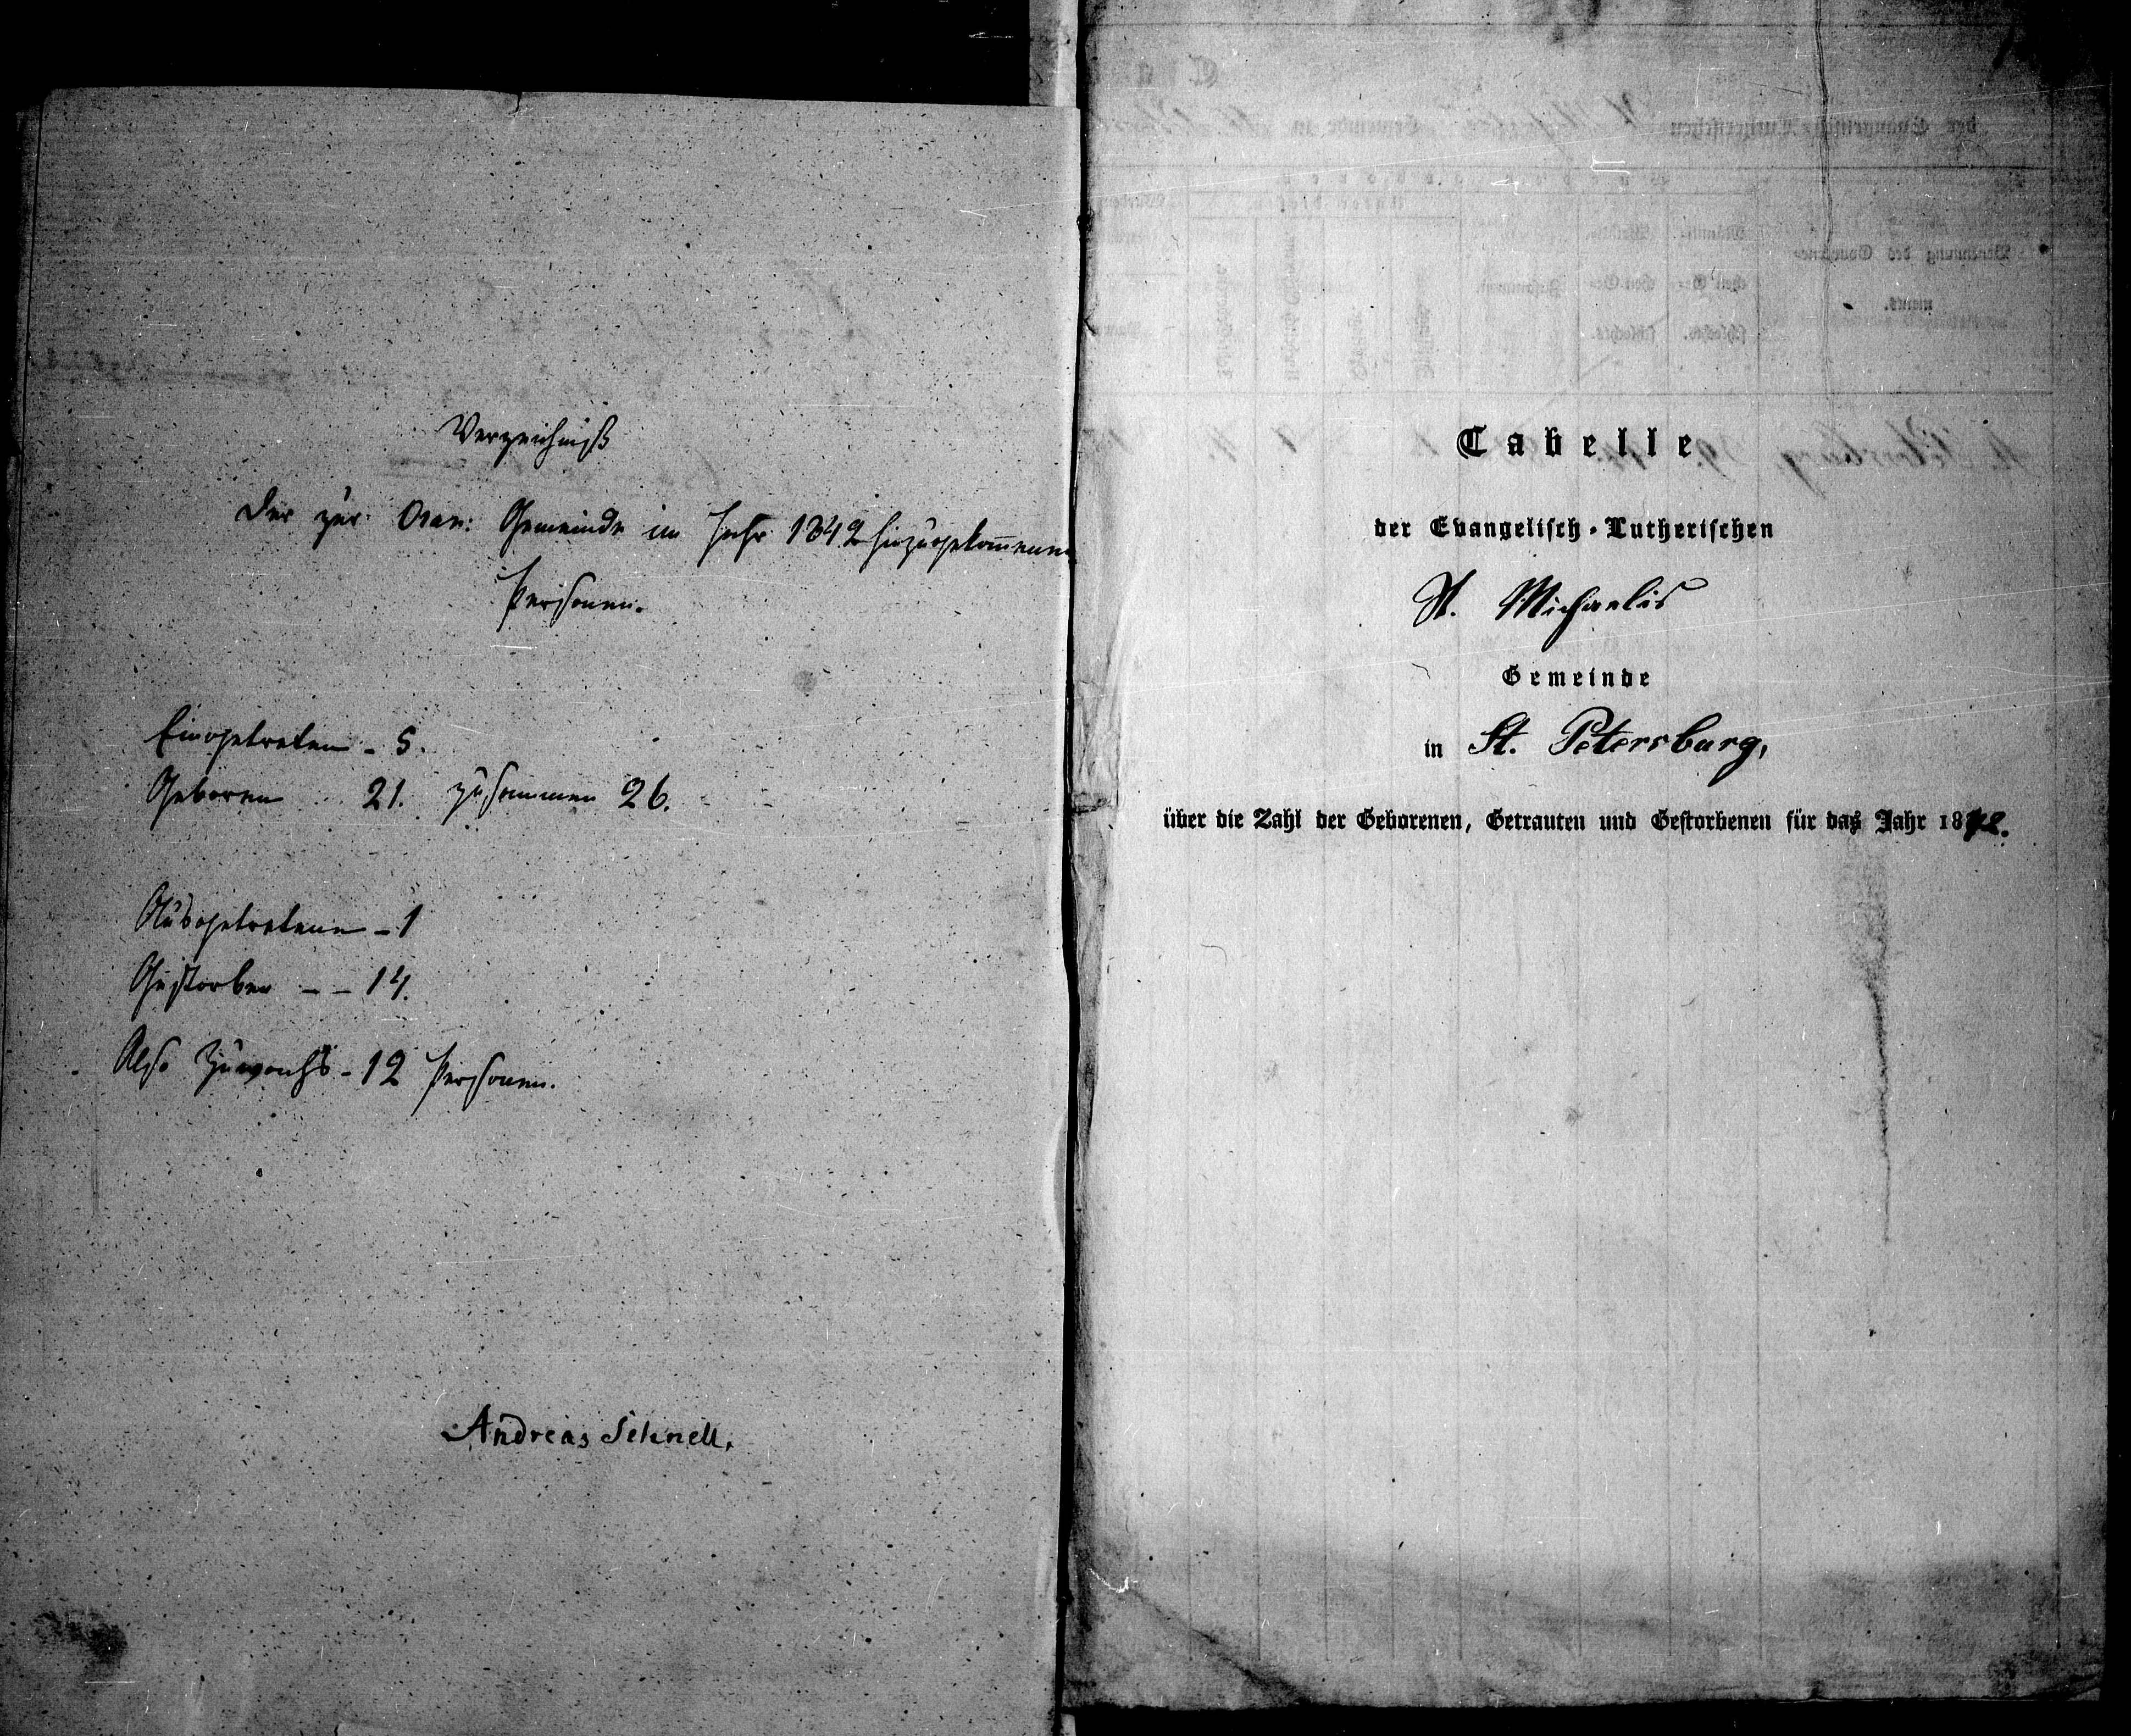 Verzeichniß
der zur Gemeinde im Jahr 1842 hinzugekom̄enen
Personen.
Eingetreten - 5.
Geboren 21. zusammen 26.
Ausgetretene - 1
Gestorben - - 14.
Also Zuwachs - 12 Personen.
Andreas Schnell.
Tabelle
der Evangelisch-Lutherischen
St. Michaelis
Gemeinde
in St. Petersburg,
über die Zahl der Geborenen, Getrauten und Gestorbenen für das Jahr 1842.